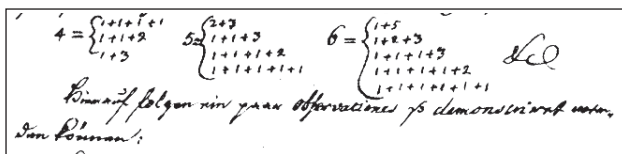 4 = { 1+1+1+1
1+1+2
1+3
5 = { 2+3
1+1+3
1+1+1+2
1+1+1+1+1
6 = { 1+5
1+2+3
1+1+1+3
1+1+1+1+2
1+1+1+1+1+1
&c
Hierauf folgen ein paar observationes so demonstriret wer-
den können: